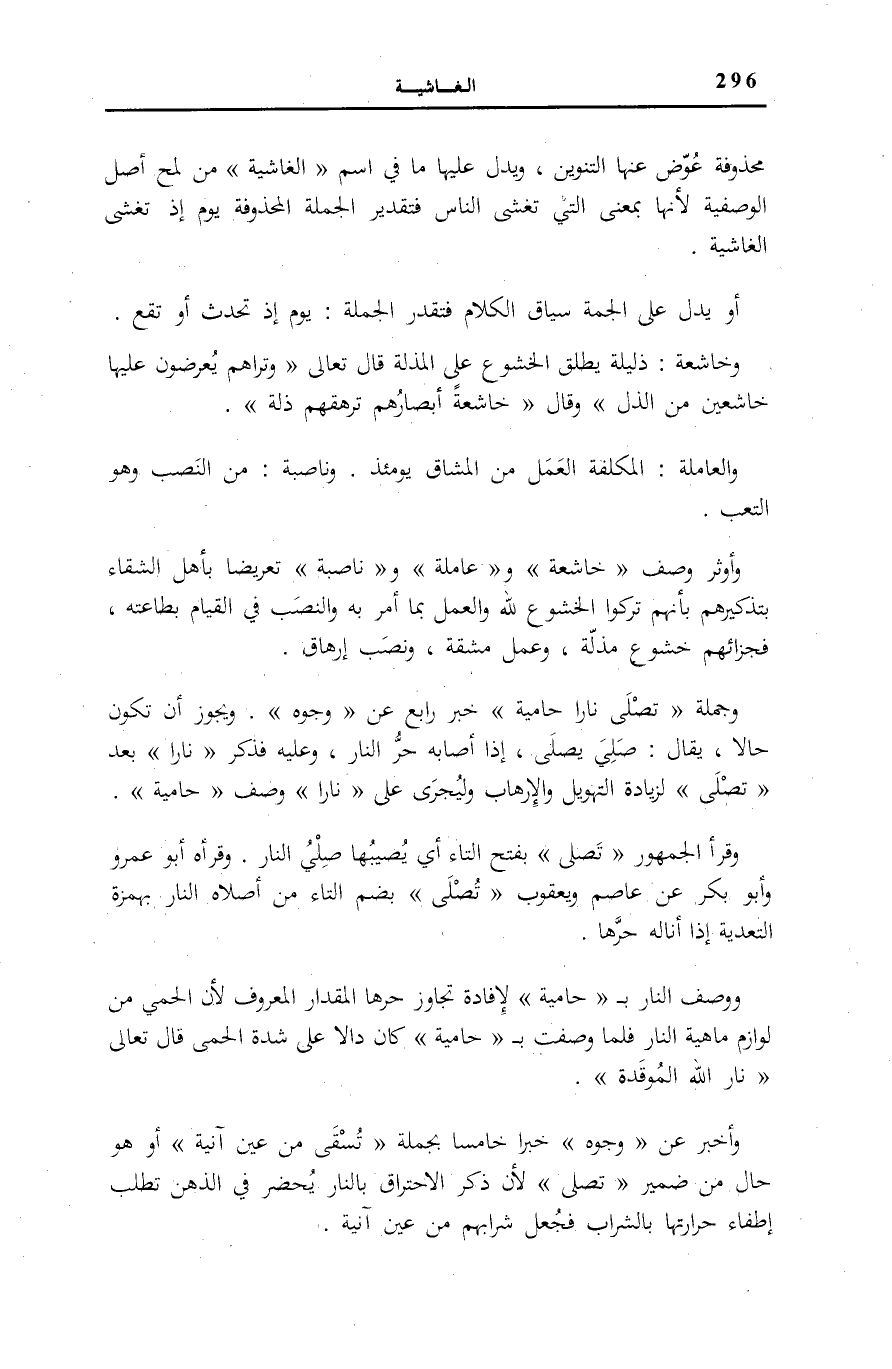 296
الغـــاشيـــة
محذوفة عُوّض عنها التنوين ، ويدل عليها ما في اسم « الغاشية » من لمح أصل
الوصفية لأنها بمعنى التي تغشى الناس فتقدير الجملة المحذوفة يوم إذ تغشى
الغاشية .
أو يدل على الجمة سياق الكلام فتقدر الجملة : يوم إذ تحدث أو تقع .
وخاشعة : ذليلة يطلق الخشوع على المذلة قال تعالى « وتراهم يُعرضون عليها
خاشعين من الذل » وقال « خاشعةً أبصارُهم ترهقهم ذلة » .
والعاملة : المكلفة العَمَل من المشاق يومئذ . وناصبة : من النَصب وهو
التعب .
وأوثر وصف « خاشعة » و« عاملة » و« ناصبة » تعريضا بأهل الشقاء
بتذكيرهم بأنهم تركوا الخشوع لله والعمل بما أمر به والنصَب في القيام بطاعته ،
فجزائهم خشوع مذلّة ، وعمل مشقة ، ونصَب إرهاق .
وجملة « تصْلَى نارا حامية » خبر رابع عن « وجوه » . ويجوز أن تكون
حالا ، يقال : صَلِيَ يصلَى ، إذا أصابه حرُّ النار ، وعليه فذكر « نارا » بعد
« تصْلَى » لزيادة التهويل والإرهاب وليُجرَى على « نارا » وصف « حامية » .
وقرأ الجمهور « تَصلى » بفتح التاء أي يُصيبُها صِلْيُ النار . وقرأه أبو عمرو
وأبو بكر عن عاصم ويعقوب « تُصْلَى » بضم التاء من أصلاه النار بهمزة
التعدية إذا أناله حرَّها .
ووصف النار بـ « حامية » لإفادة تجاوز حرها المقدار المعروف لأن الحمي من
لوازم ماهية النار فلما وصفت بـ « حامية » كان دالا على شدة الحمى قال تعالى
« نار الله المُوقَدة » .
وأخبر عن « وجوه » خبرا خامسا بجملة « تُسْقَى من عين آنية » أو هو
حال من ضمير « تصلى » لأن ذكر الاحتراق بالنار يُحضر في الذهن تطلب
إطفاء حرارتها بالشراب فجُعل شرابهم من عين آنية .